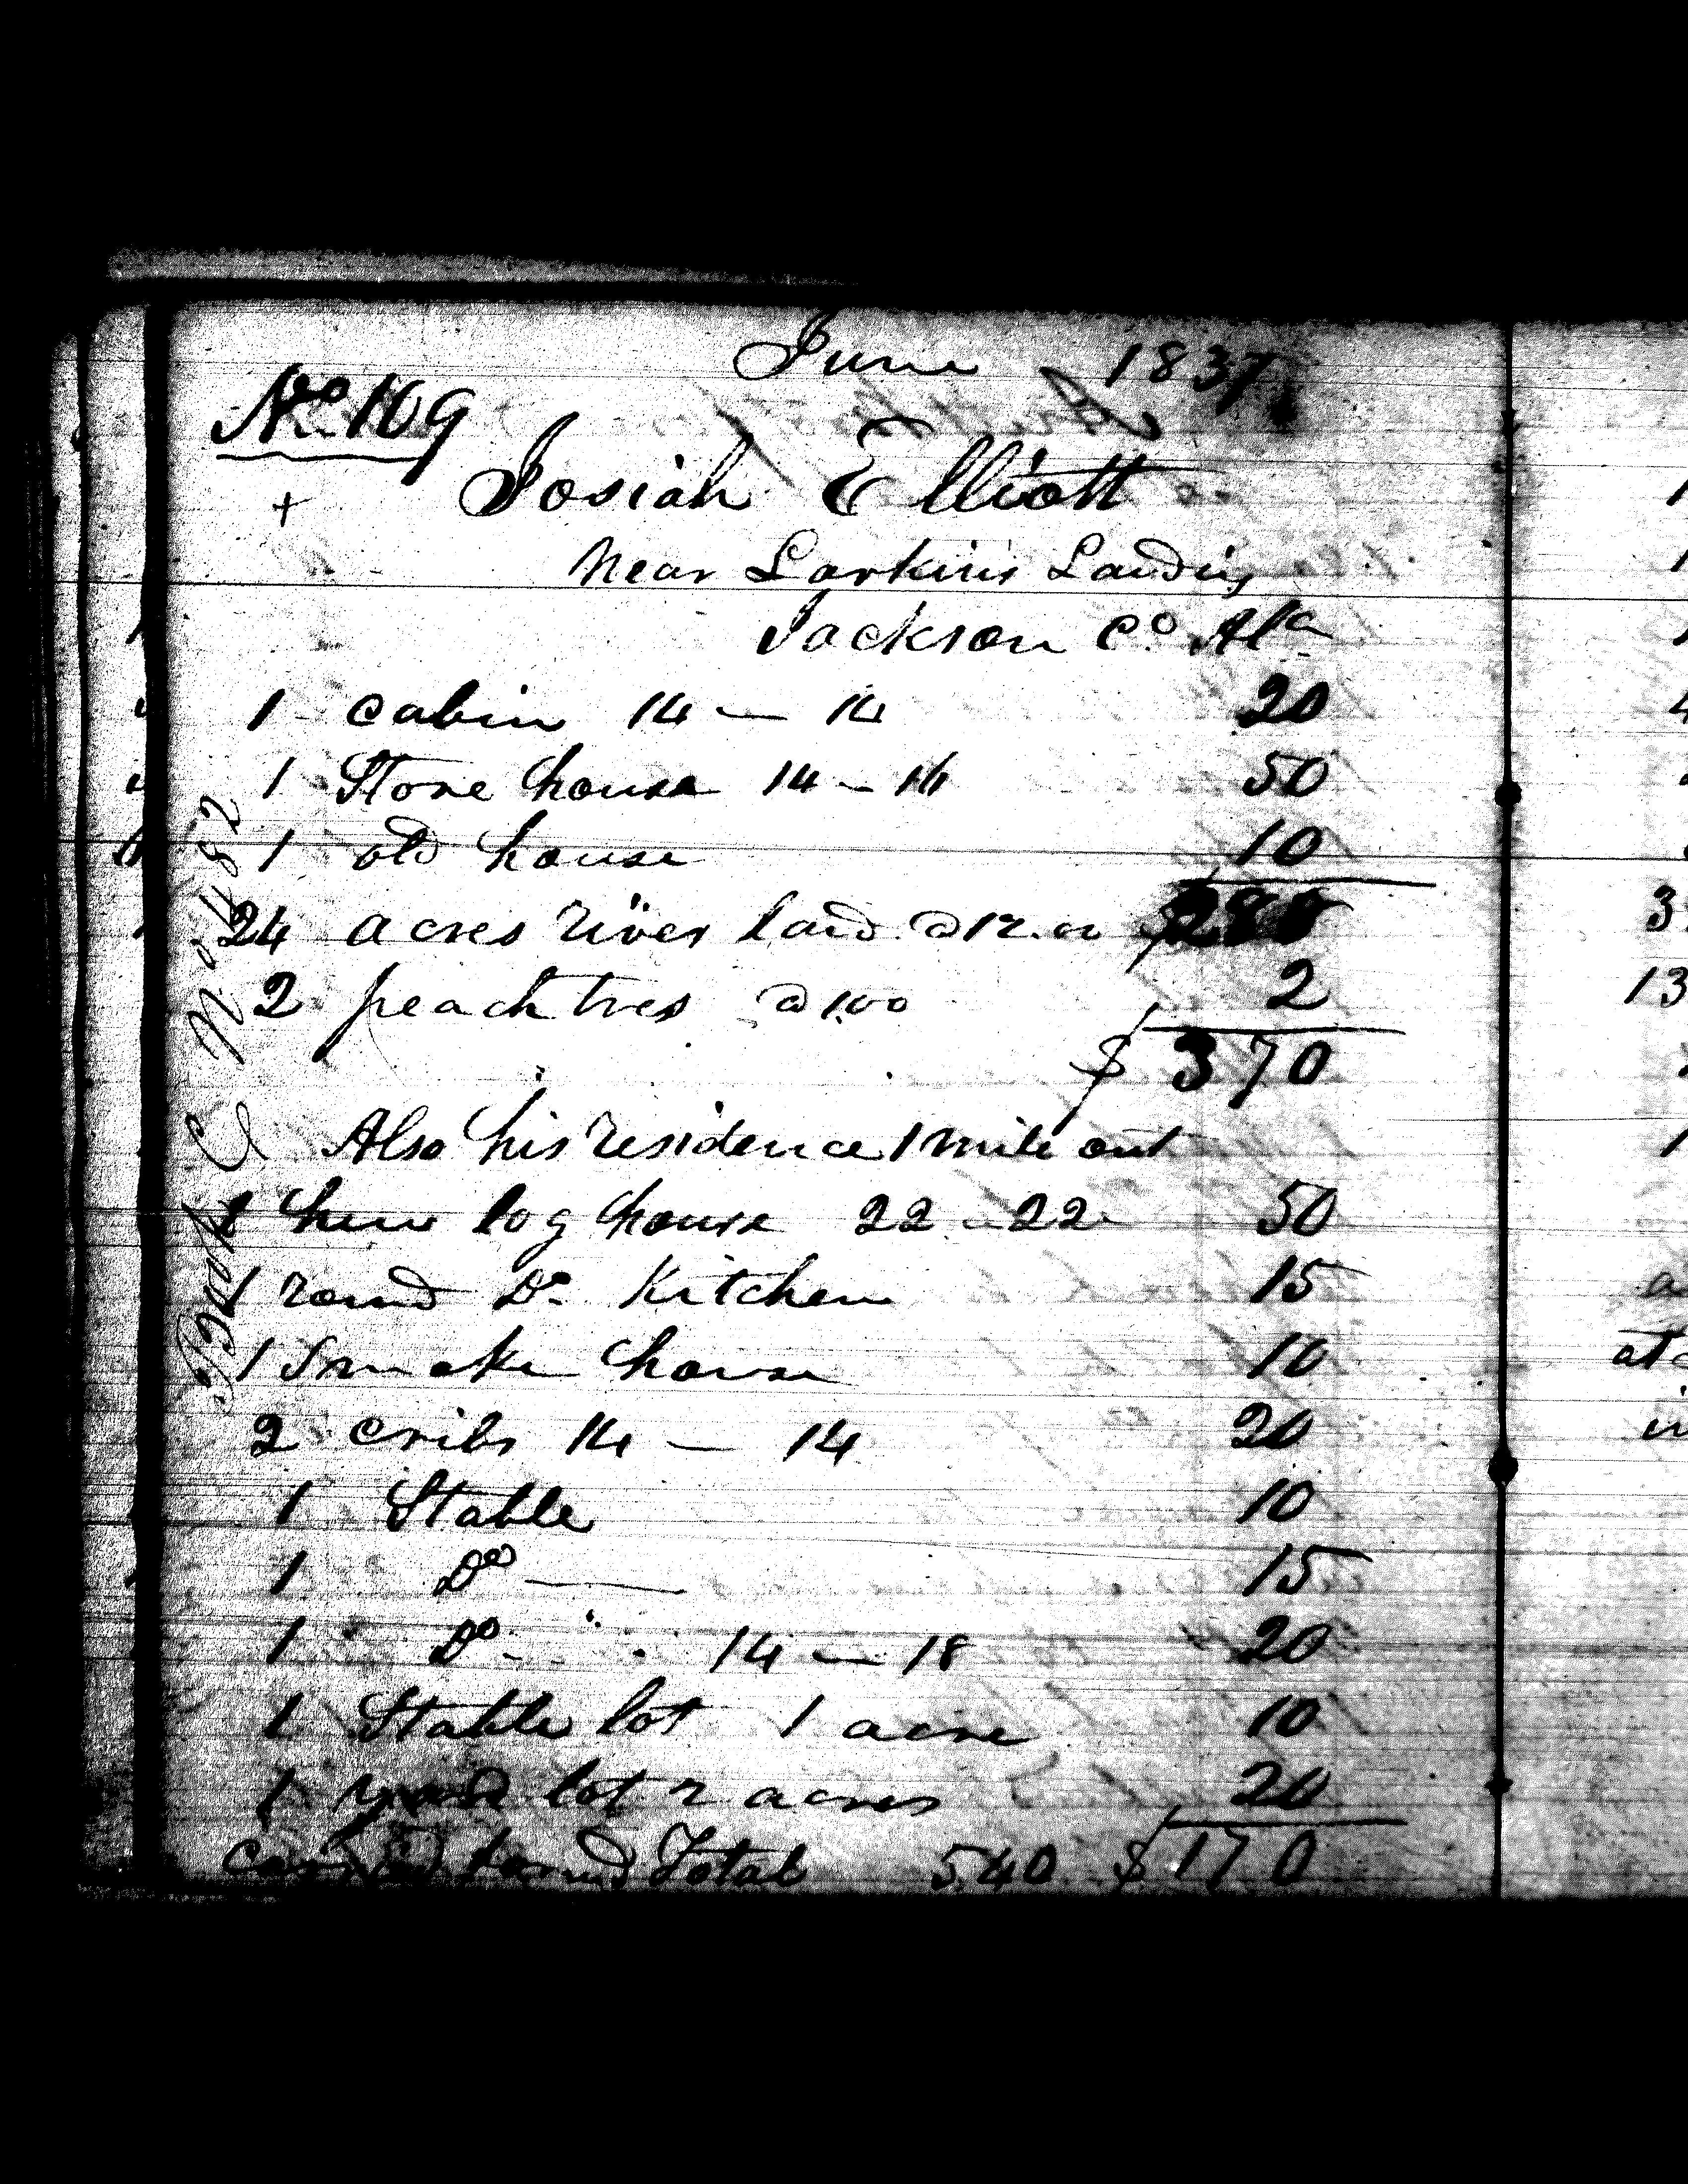 June 1837
No 109
+
Josiah Elliott
Near Larkins Landing
Jackson Co. Ala
1 cabin 14 — 14 20
1 Store house 14 - 16 50
1 old house 10
24 acres river land @ 12.00 $288
2 peach tres @ 100 2
$ 370
Also his residence 1 mile out
1 hew log house 22 - 22 50
1 round Do. Kitchen 15
1 Smoke house 10
2 cribs 14 — 14 20
1 Stable 10
1 Do — 15
1 Do " 14 — 18 20
1 Stable lot 1 acre 10
1 yard lot 2 acres 20
Total 540 $170
Book C No 482